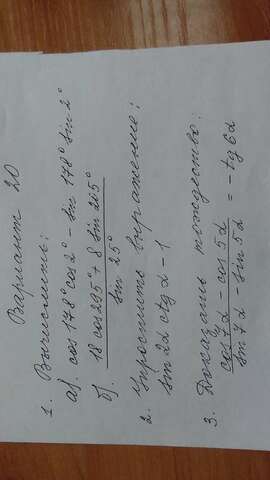 Вариант 20
1. Вычислить:
а). cos 178° cos 2° - sin 178° sin 2°
б). 18 cos 295° + 8 sin 205°
sin 25°
2. Упростить выражение:
sin 2α ctg α - 1
3. Доказать тождество:
cos 7α - cos 5α
sin 7α - sin 5α = - tg 6α